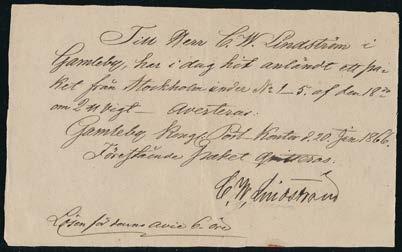 Till Herr C. W. Lindström i
Gamleby, har i dag hit anländt ett pa-
ket från Stockholm under No 1-5. af den 18de
om 2 ℔ vigt — averteras.
Gamleby Kongl. Post-Kontor d. 20 Jan 1866.
Föreskående Paket qvitteras.
C. W. Lindström
Lösen för denna avie 6. öre